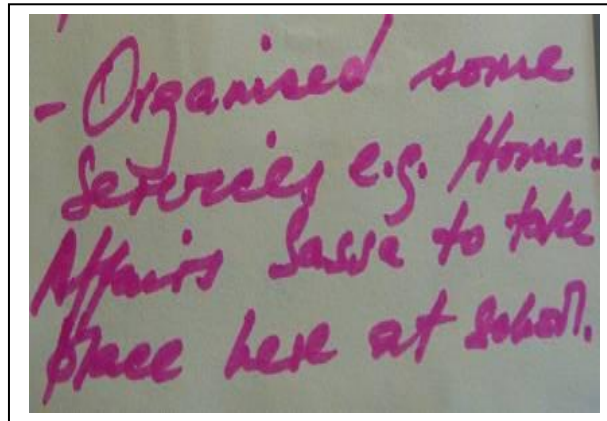 - Organised some
Services e.g. Home.
Affairs Sassa to take
place here at school.